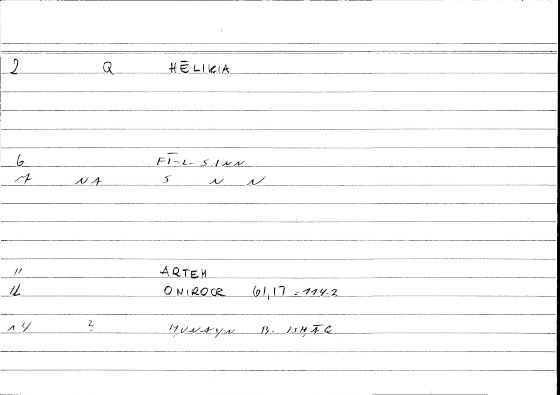 2 Q HĒLIKIA
6 FĪ-L-SINN
7 NA S N N
11 ARTEM
12 ONIROCR 61,17 = 114.2
14 ? ḤUNAYN B. ISḤĀQ